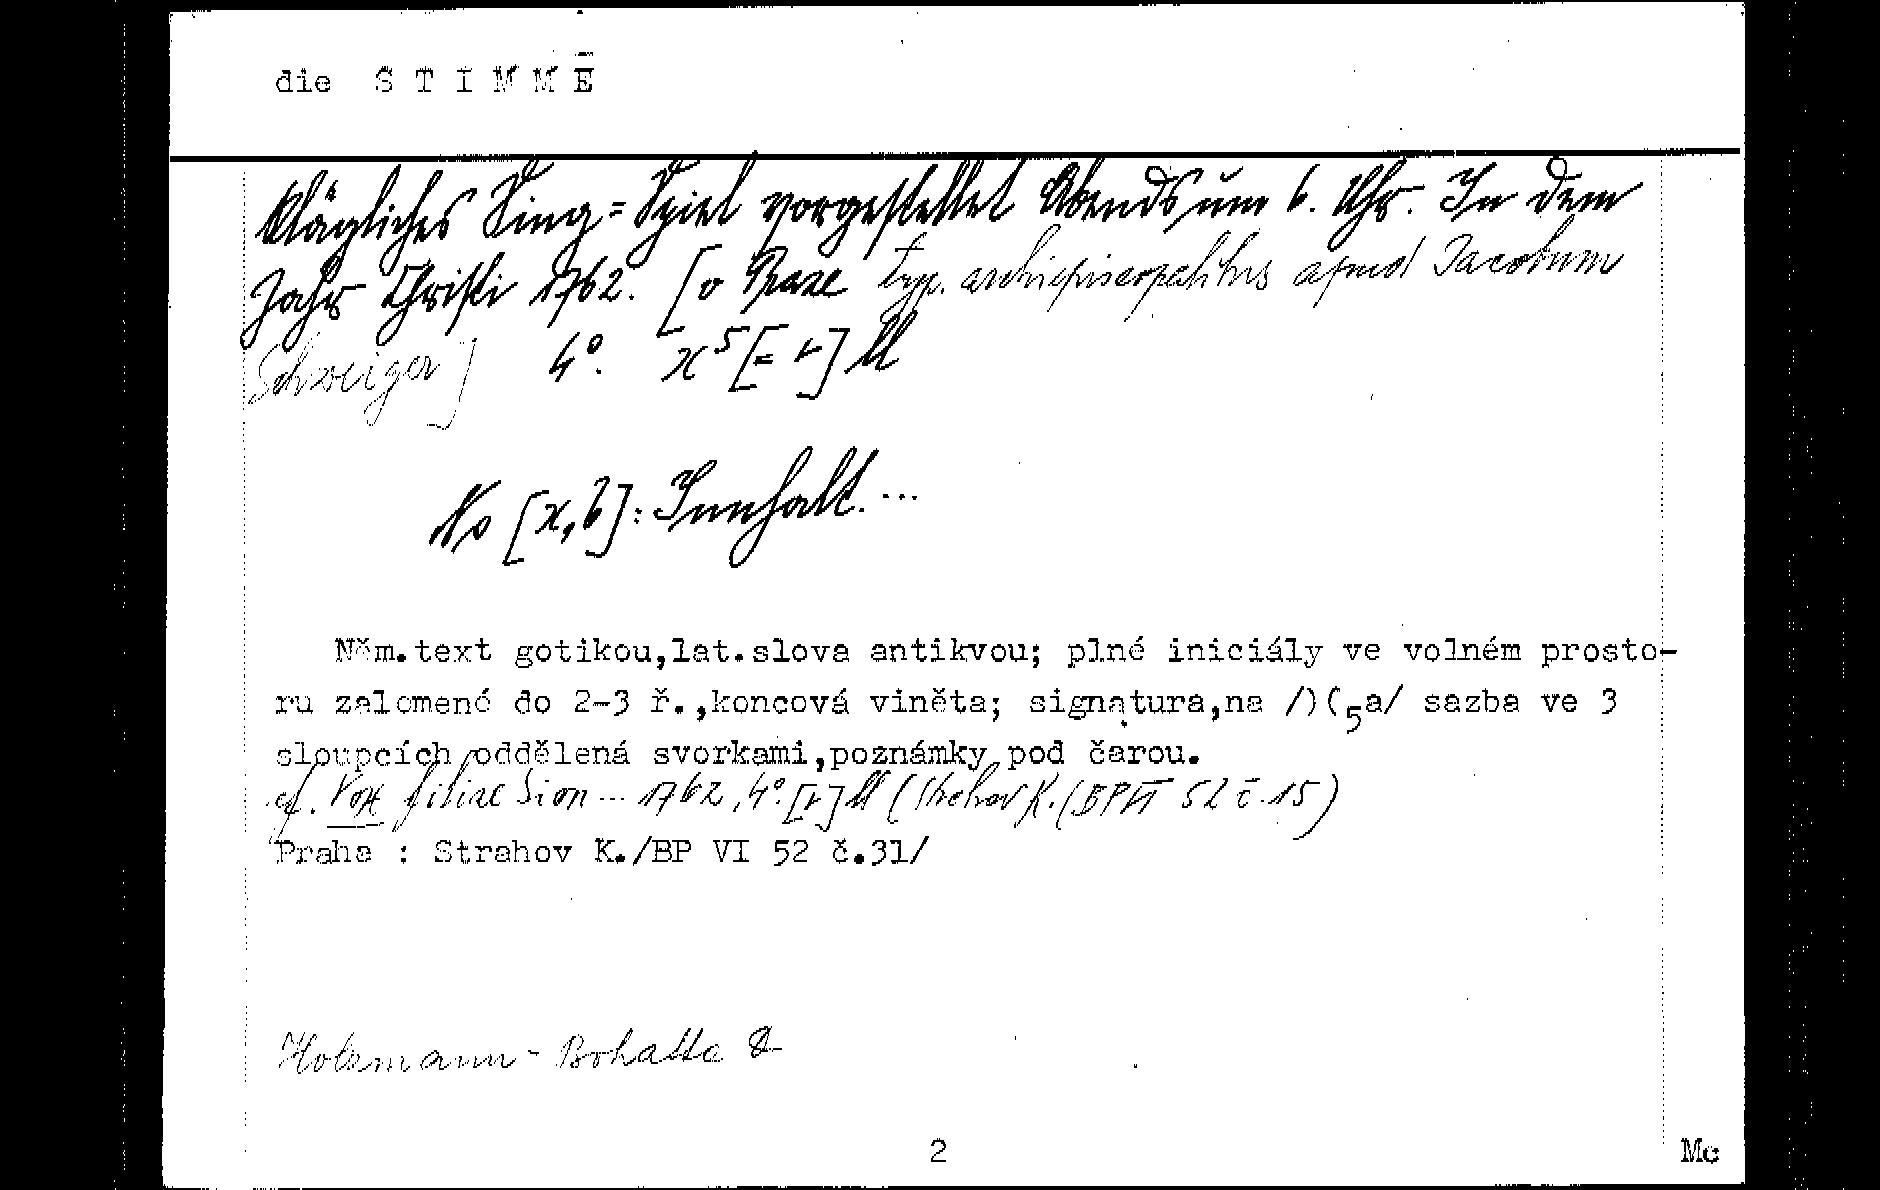 die STIMME
klägliches Sing=Spiel vorgestellet Abends um 6. Uhr. In dem
Jahr Christi 1762. [v Praze typ. archiepiscopalibus apud Jacobum
Schweiger] 4°. x⁵ [= 5] ll
Na [x,b]: Innhalt. ...
Něm.text gotikou,lat.slova antikvou; plné iniciály ve volném prosto-
ru zalomené do 2-3 ř.,koncová viněta; signatura,na /)(5a/ sazba ve 3
sloupcích oddělená svorkami,poznámky pod čarou.
cf. Vox filiae Sion ... 1762, 4°. ll (Strahov K. (BP VI 52 č. 15)
Praha : Strahov K./BP VI 52 č.31/
Holzmann - Bohatta
2
Mc